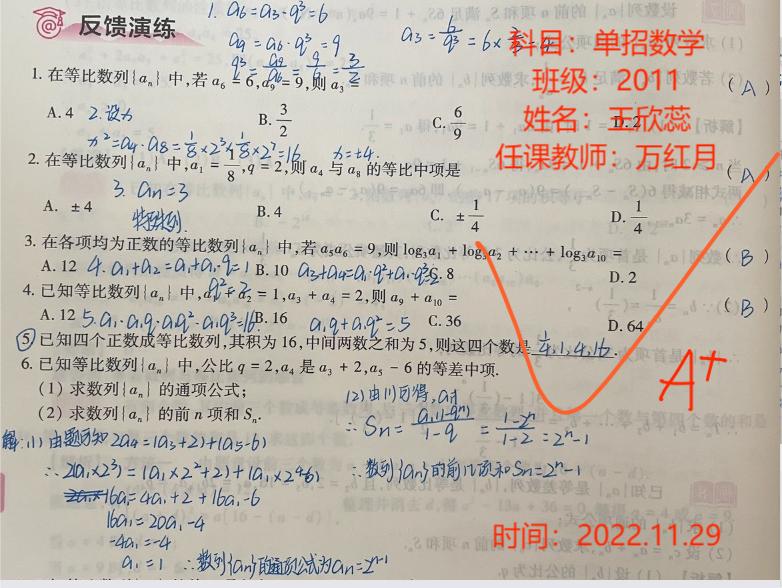 反馈演练
1. a₆=a₃·q³=6
a₉=a₆·q³=9
q³=a₉/a₆=9/6=3/2
科目：单招数学
班级：2011
姓名：王欣蕊
任课教师：万红月
1. 在等比数列{aₙ}中,若a₆=6,a₉=9,则a₃= (A)
A. 4 B. 3/2 C. 6/9 D. 2
2. 设为
x²=a₄·a₈=1/8×2³×1/8×2⁷=16 x=±4.
2. 在等比数列{aₙ}中,a₁=1/8,q=2,则a₄与a₈的等比中项是 (A)
A. ±4 B. 4 C. ±1/4 D. 1/4
3. aₙ=3
特殊数列.
3. 在各项均为正数的等比数列{aₙ}中,若a₅a₆=9,则log₃a₁+log₃a₂+⋯+log₃a₁₀= (B)
A. 12 B. 10 C. 8 D. 2
4. a₁+a₂=a₁+a₁·q=1 a₃+a₄=a₁·q²+a₁·q³=2
q²=2
4. 已知等比数列{aₙ}中,a₁+a₂=1,a₃+a₄=2,则a₉+a₁₀= (B)
A. 12 B. 16 C. 36 D. 64
5. a₁·a₁q·a₁q²·a₁q³=16 a₁q+a₁q²=5
5 已知四个正数成等比数列,其积为16,中间两数之和为5,则这四个数是 1/4,1,4,16.
6. 已知等比数列{aₙ}中,公比q=2,a₄是a₃+2,a₅-6的等差中项.
(1) 求数列{aₙ}的通项公式;
(2) 求数列{aₙ}的前n项和Sₙ.
解:(1) 由题可知2a₄=(a₃+2)+(a₅-6)
∴2(a₁×2³)=(a₁×2²+2)+(a₁×2⁴-6)
16a₁=4a₁+2+16a₁-6
16a₁=20a₁-4
-4a₁=-4
a₁=1 ∴数列{aₙ}的通项公式为aₙ=2ⁿ⁻¹
(2)由(1)可得,a₁=1
∴Sₙ=a₁(1-qⁿ)/1-q=1-2ⁿ/1-2=2ⁿ-1
∴数列{aₙ}的前n项和Sₙ=2ⁿ-1
A+
时间：2022.11.29